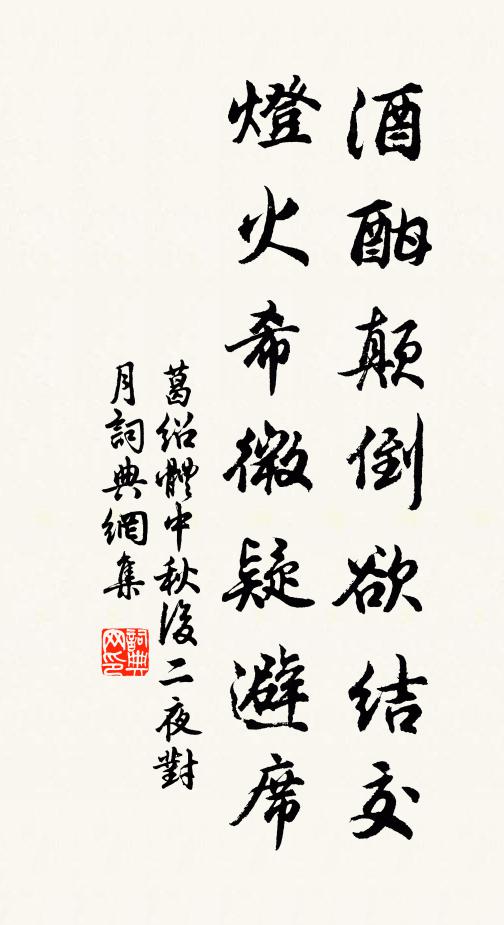 酒酣颠倒欲结交
燈火希微疑避席
葛绍體中秋後二夜對
月詞典網集
詞典网印